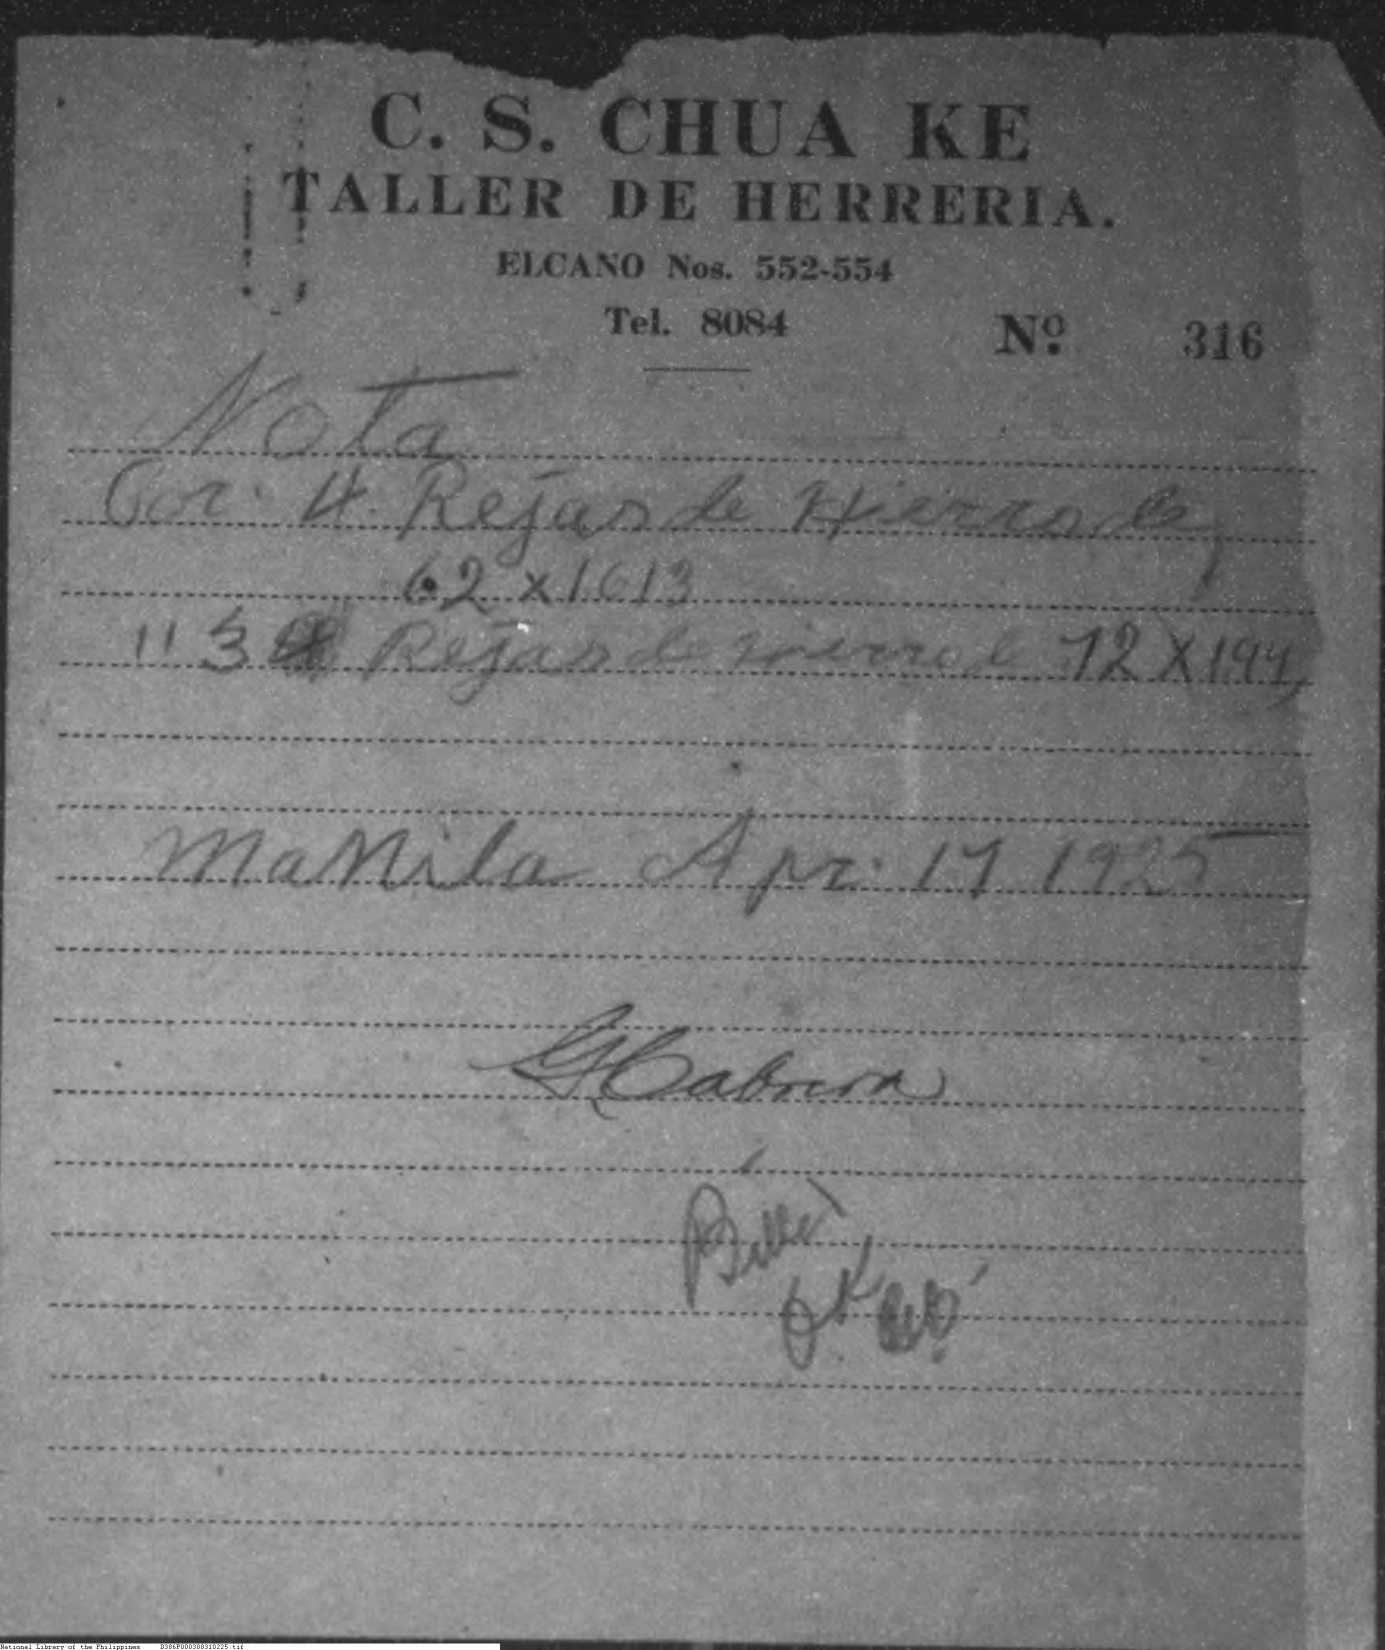 C. S. CHUA KE
TALLER DE HERRERIA.
ELCANO Nos. 552-554
Tel. 8084
Nº 316
Nota
Por 4 Rejas de Hierro de
62 x 1613
" 3 Rejas de Hierro de 72 X 194
MaNila Apr. 17 1925
G Cabrera
Billed
OK
National Library of the Philippines D386P000308310225.tif